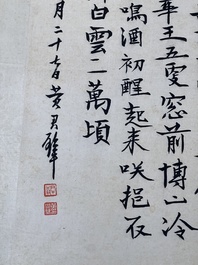 華王五雲窓前博山冷
鳴酒初醒起来笑挹衣
白雲二萬頃
月二十七日黄君璧